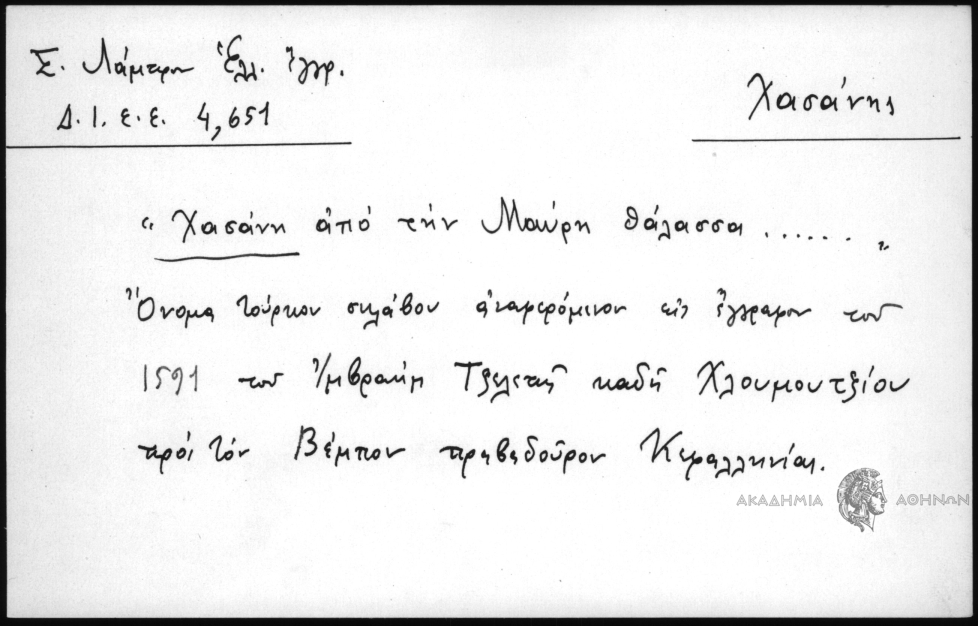 Σ. Λάμπρου Ἑλλ. Ἔγγρ.
Δ. Ι. Ε. Ε. 4,651
Χασάνης
“Χασάνη ἀπό τήν Μαύρη θάλασσα ...... „
Ὄνομα Τούρκου σκλάβου ἀναφερόμενον εἰς ἔγγραφον τοῦ
1591 τοῦ Ἰμβραήμ Τζελεπῆ καδῆ Χλουμουτζίου
πρός τόν Βέμπον πρεβεδοῦρον Κεφαλληνίας.
ΑΚΑΔΗΜΙΑ ΑΘΗΝΩΝ